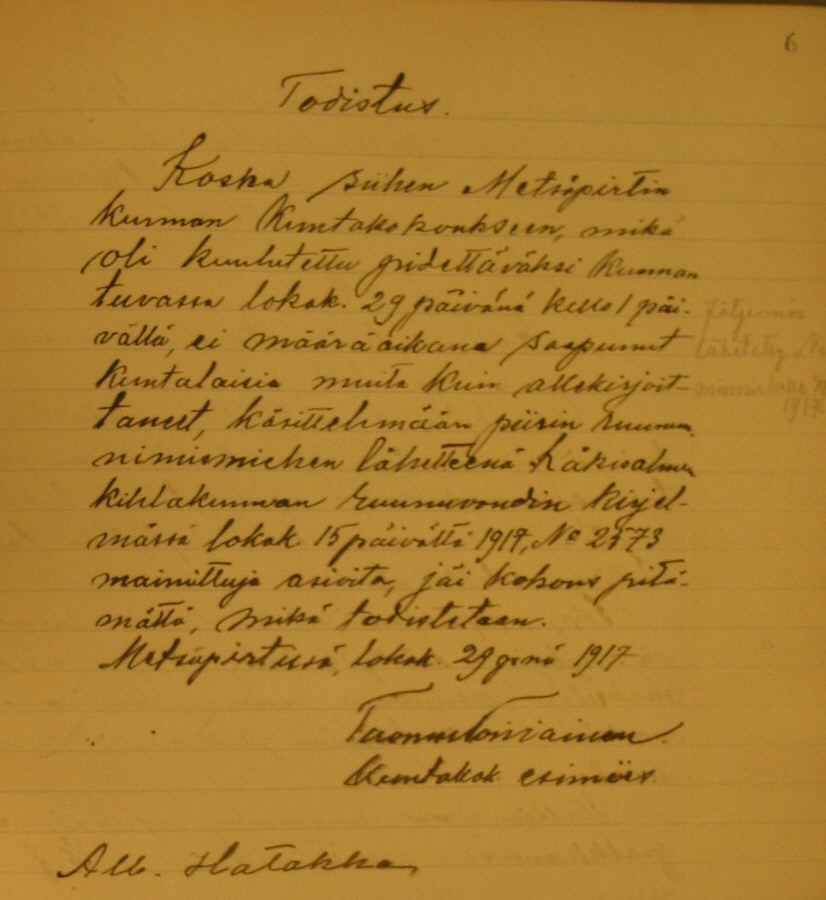 6
Todistus.
Koska siihen Metsäpirtin
kunnan Kuntakokoukseen, mikä
oli kuulutettu pidettäväksi Kunnan
tuvassa lokak. 29 päivänä kello 1 päi-
vällä, ei määräaikana saapunut
Kuntalaisia muita kuin allekirjoit-
taneet, käsittelemään piirin ruunun
nimismiehen lähetteenä Käkisalmen
kihlakunnan ruununvoudin kirjel-
mässä lokak. 15 päivältä 1917, No 2573
mainittuja asioita, jäi kokous pitä-
mättä, mikä todistetaan.
Metsäpirtissä, lokak. 29 p:nä 1917.
Toniainen.
Kuntakok. esimies.
Alb. Hatakka
lähetetty
1917